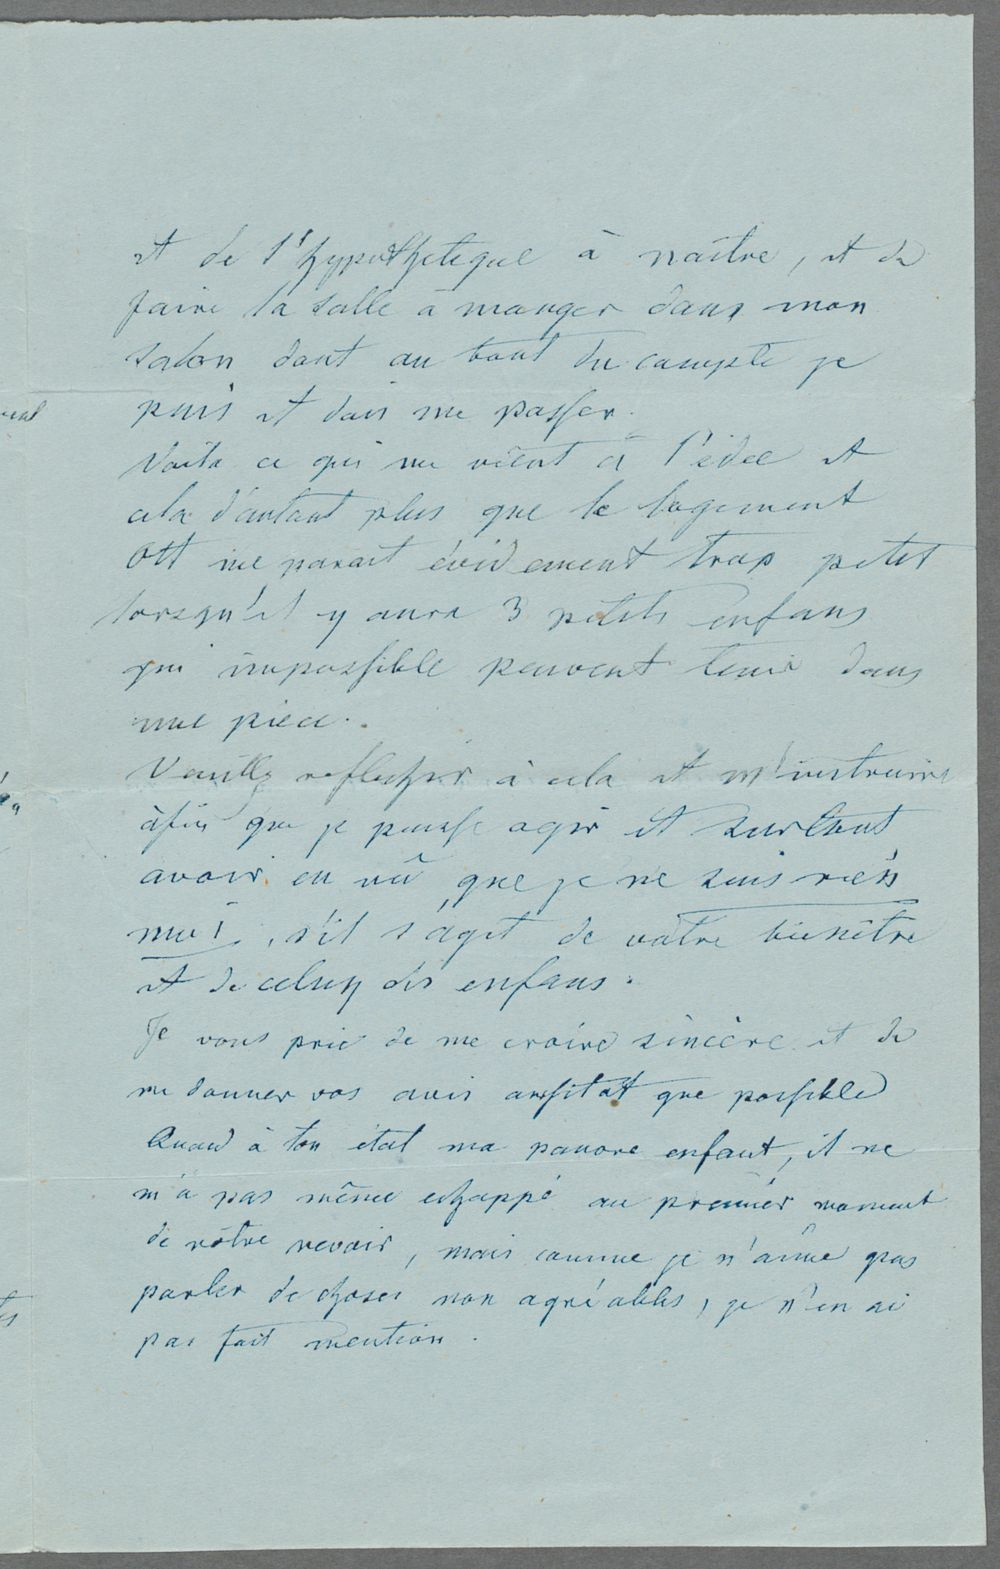 et de l'hypothetique à naître, et de
faire la salle à manger dans mon
salon dont au bout du compte je
puis et dois me passer.
Voila ce qui me vient à l'idee et
cela d'autant plus que le logement
Ott me parait évidement trop petit
lorsqu'il y aura 3 petits enfans
qui impossible peuvent tenir dans
une piece.
Veuillez reflechir à cela et m'instruire
àfin que je puisse agir et surtout
avoir en vû que je ne suis rien
moi, s'il s'agit de vôtre bienêtre
et de celuy des enfans.
Je vous prie de me croire sincère et de
me donner vos avis aussitôt que possible
Quand à ton état ma pauvre enfant, il ne
m'a pas même echappé au premier moment
de nôtre revoir, mais comme je n'aime pas
parler de choses non agréables, je n'en ai
pas fait mention.